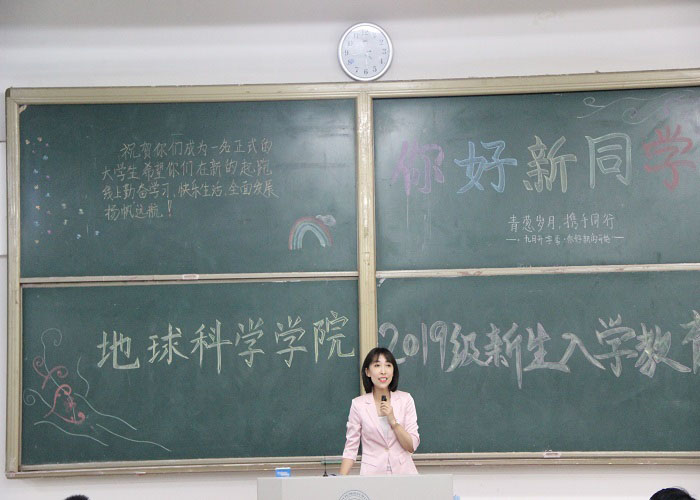 祝贺你们成为一名正式的
大学生希望你们在新的起跑
线上勤奋学习,快乐生活,全面发展
扬帆远航!
你好新同学
青葱岁月,携手同行
地球科学学院
2019级新生入学教育